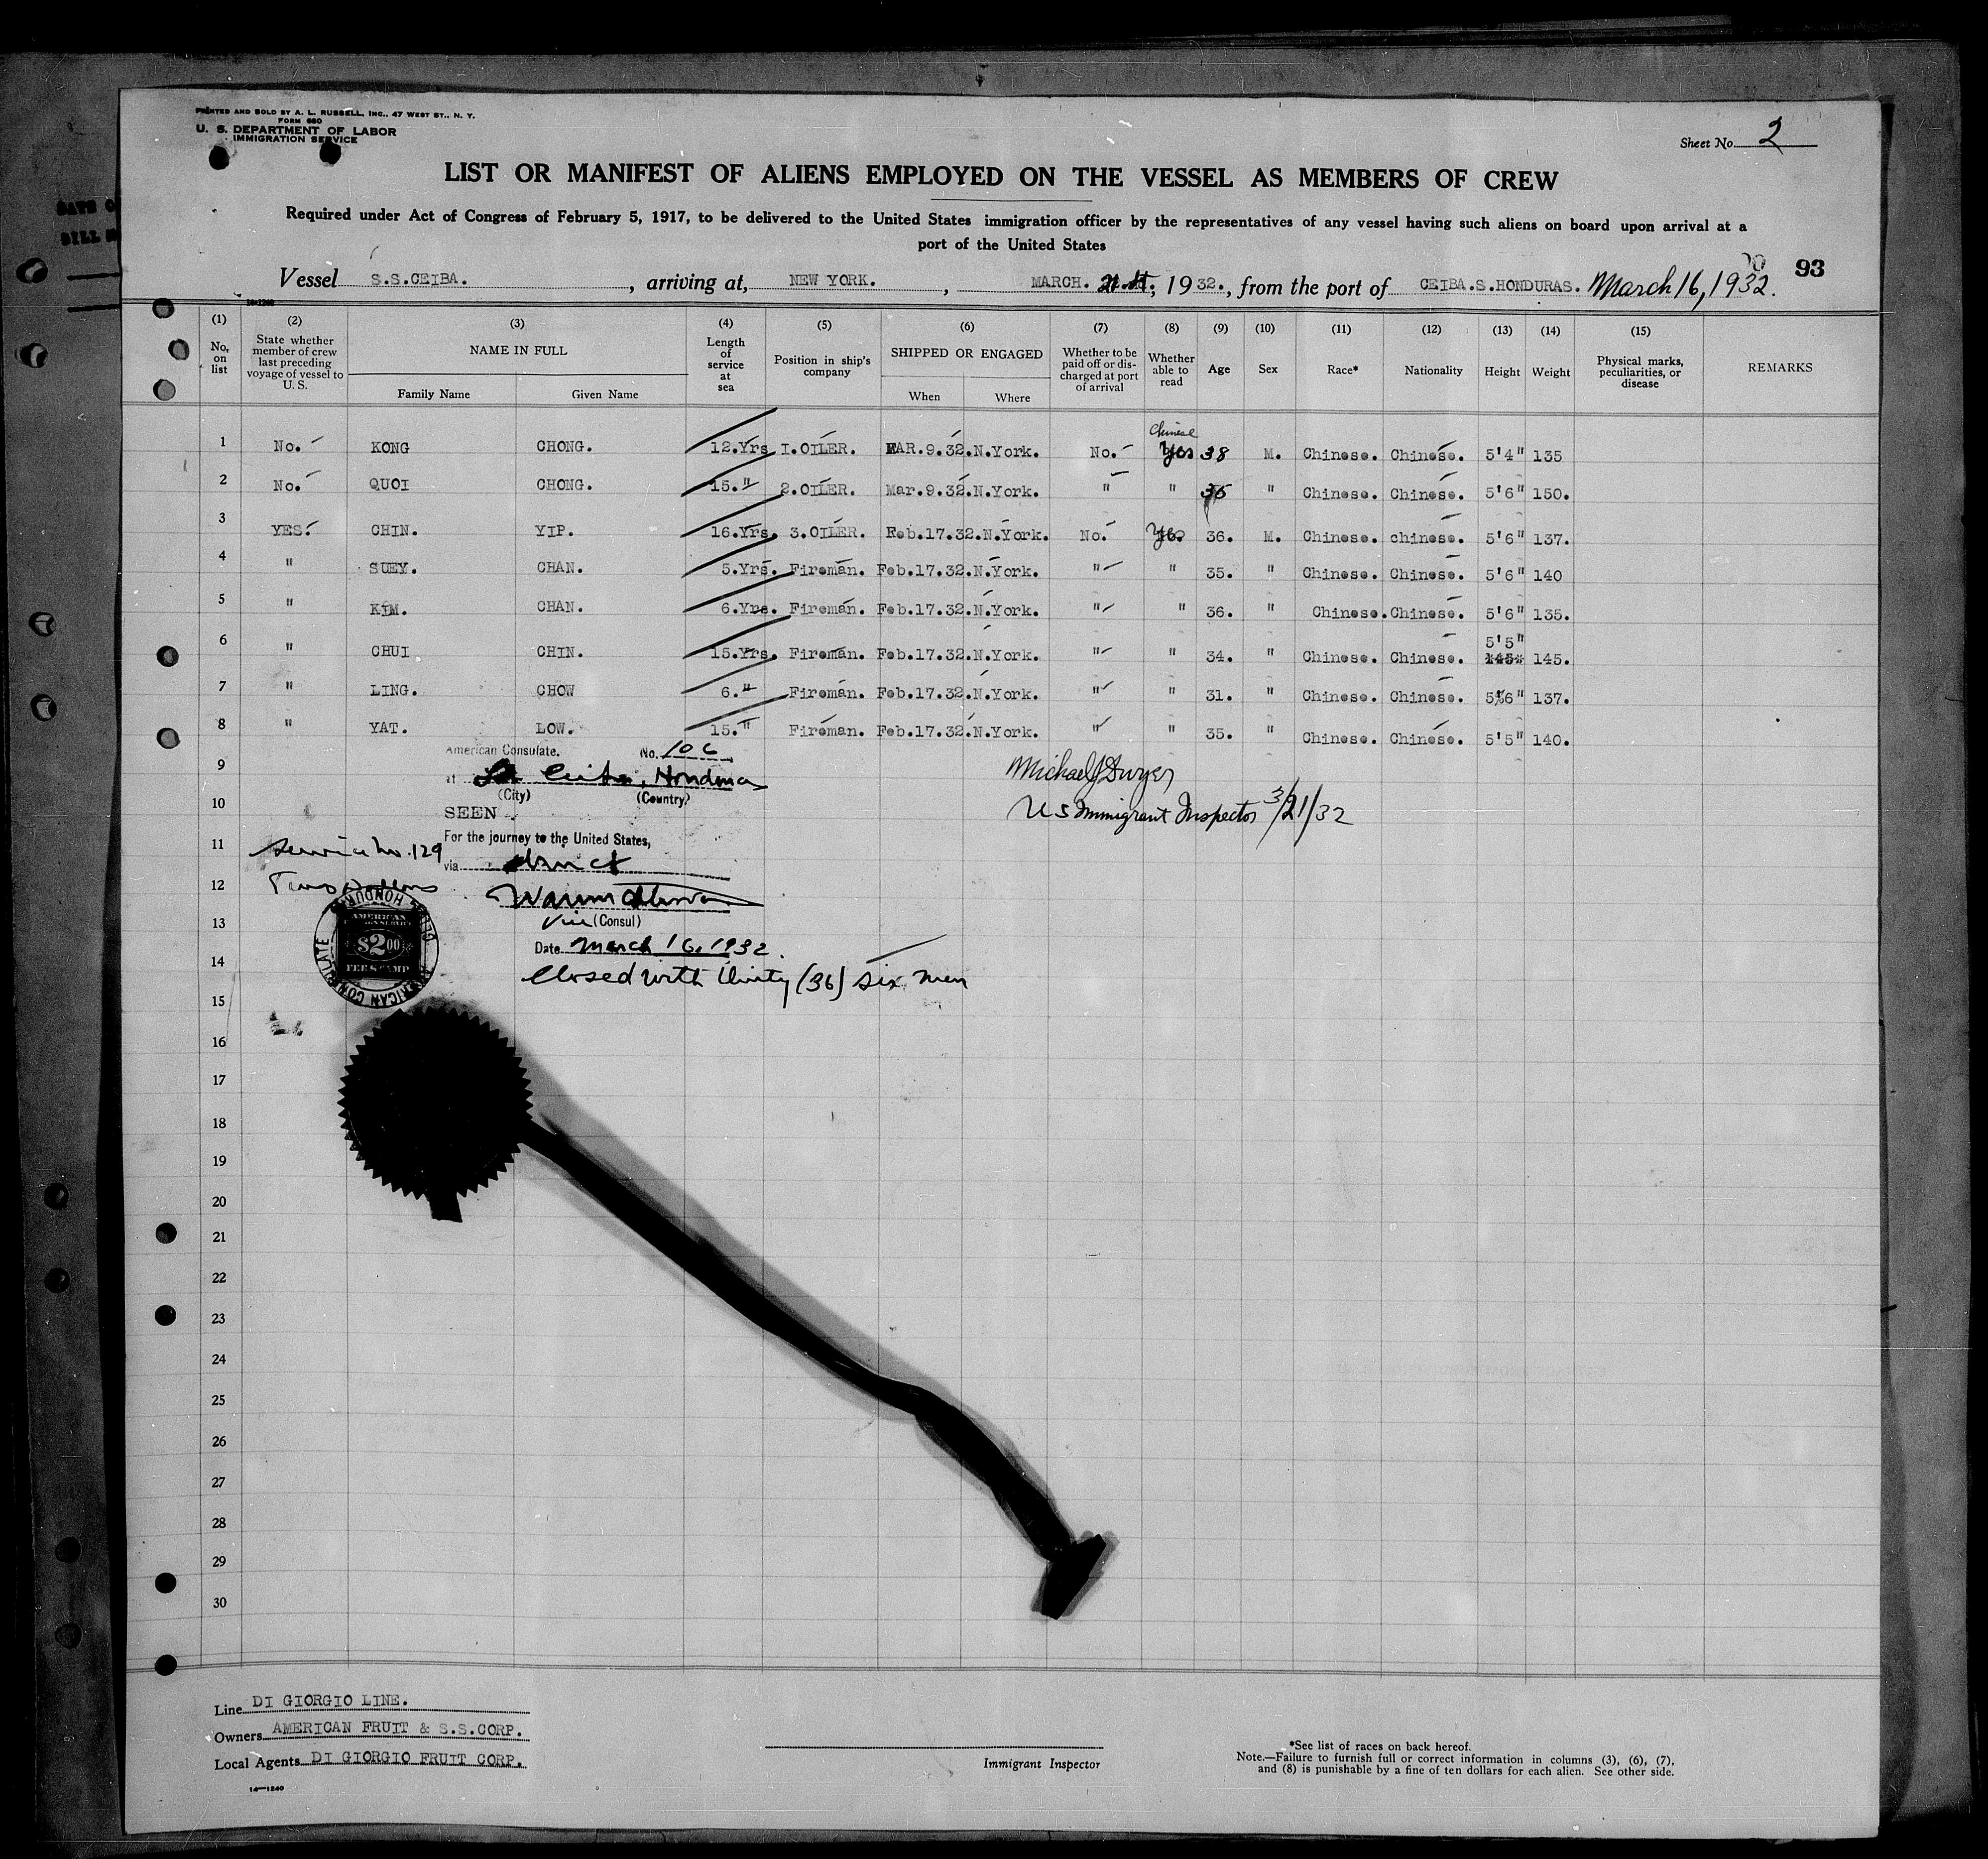 PRINTED AND SOLD BY A. L. RUSSELL, INC., 47 WEST ST., N. Y.
FORM 680
U. S. DEPARTMENT OF LABOR
IMMIGRATION SERVICE
Sheet No. 2
LIST OR MANIFEST OF ALIENS EMPLOYED ON THE VESSEL AS MEMBERS OF CREW
Required under Act of Congress of February 5, 1917, to be delivered to the United States immigration officer by the representatives of any vessel having such aliens on board upon arrival at a
port of the United States
93
Vessel S.S.CEIBA. , arriving at, NEW YORK. , MARCH. 21st, 1932., from the port of CEIBA.S.HONDURAS. March 16, 1932.
14-1240
(1) (2) (3) (4) (5) (6) (7) (8) (9) (10) (11) (12) (13) (14) (15)
No. on list State whether member of crew last preceding voyage of vessel to U. S. NAME IN FULL Length of service at sea Position in ship's company SHIPPED OR ENGAGED Whether to be paid off or discharged at port of arrival Whether able to read Age Sex Race* Nationality Height Weight Physical marks, peculiarities, or disease REMARKS
Family Name Given Name When Where
Chinese
1 No. KONG CHONG. 12.Yrs 1.OILER. MAR.9.32.N.York. No. Yes 38 M. Chinese. Chinese. 5'4" 135
2 No. QUOI CHONG. 15." 2.OILER. Mar.9.32.N.York. " " 35 " Chinese. Chinese. 5'6" 150.
3 YES. CHIN. YIP. 16.Yrs. 3.OILER. Feb.17.32.N.York. No. Yes 36. M. Chinese. chinese. 5'6" 137.
4 " SUEY. CHAN. 5.Yrs. Fireman. Feb.17.32.N.York. " " 35. " Chinese. Chinese. 5'6" 140
5 " KIM. CHAN. 6.Yrs. Fireman. Feb.17.32.N.York. " " 36. " Chinese. Chinese. 5'6" 135.
6 " CHUI CHIN. 15.Yrs. Fireman. Feb.17.32.N.York. " " 34. " Chinese. Chinese. 5'5" 145.
7 " LING. CHOW 6." Fireman. Feb.17.32.N.York. " " 31. " Chinese. Chinese. 5'6" 137.
8 " YAT. LOW. 15." Fireman. Feb.17.32.N.York. " " 35. " Chinese. Chinese. 5'5" 140.
American Consulate. No. 106
9
at La Ceiba, Honduras
(City) (Country)
Michael J Dwyer
10
SEEN
US Immigrant Inspector 3/21/32
For the journey to the United States,
11
Service No. 129
via direct
12
Two Dollars
Vice (Consul)
13
AMERICAN
$2.00
FEE STAMP
AMERICAN CONSULATE
Date March 16, 1932.
14
Closed with thirty (36) six men
15
16
17
18
19
20
21
22
23
24
25
26
27
28
29
30
Line DI GIORGIO LINE.
Owners AMERICAN FRUIT & S.S.CORP.
Local Agents DI GIORGIO FRUIT CORP.
14-1240
Immigrant Inspector
*See list of races on back hereof.
Note.—Failure to furnish full or correct information in columns (3), (6), (7),
and (8) is punishable by a fine of ten dollars for each alien. See other side.